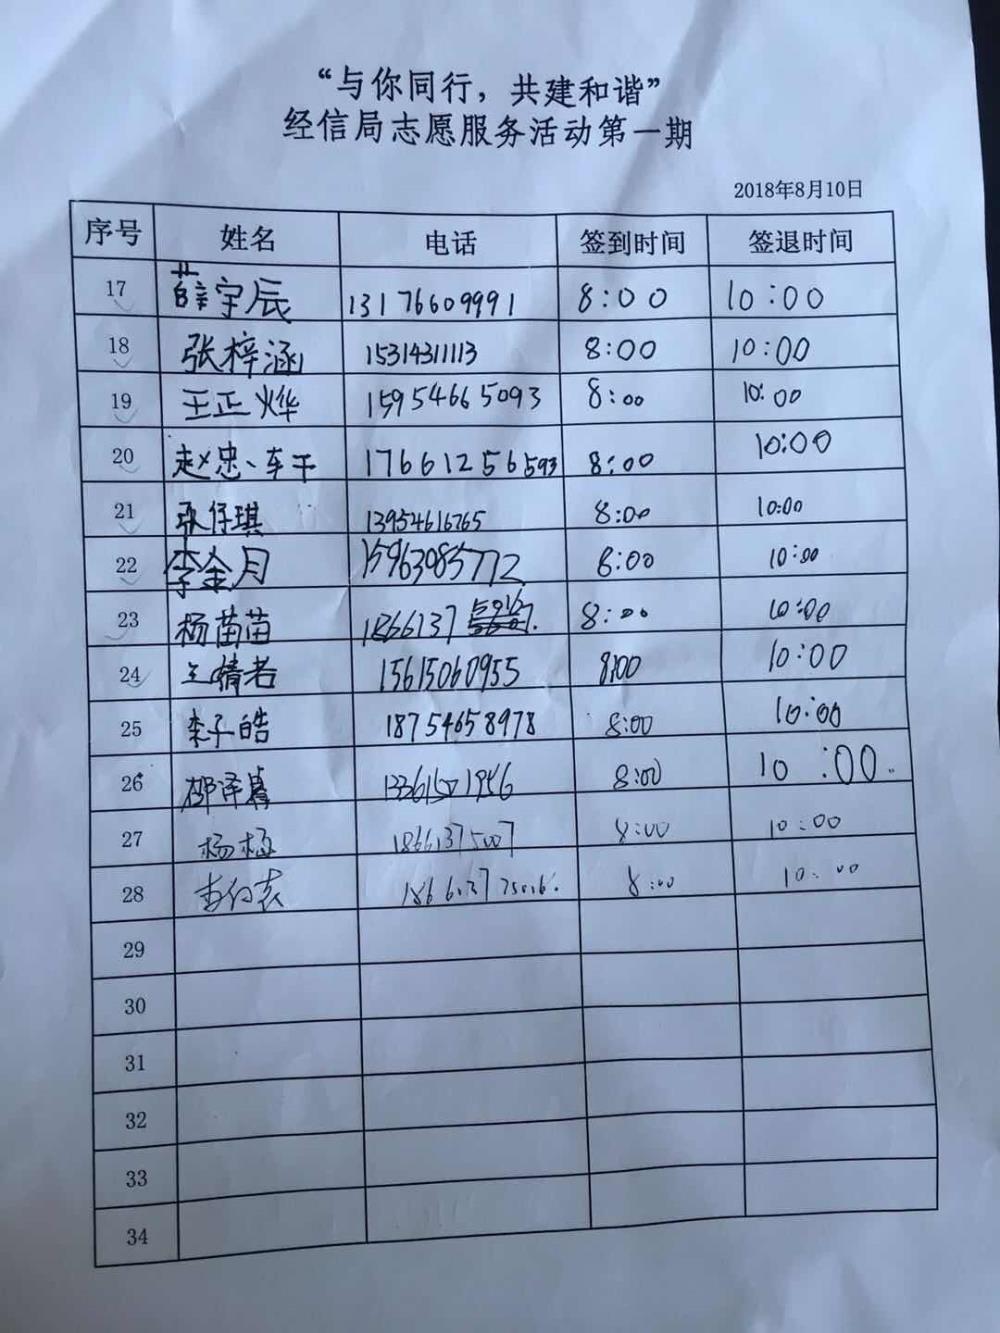 “与你同行，共建和谐”
经信局志愿服务活动第一期
2018年8月10日
序号 姓名 电话 签到时间 签退时间
17 薛宇辰 13176609991 8:00 10:00
18 张梓涵 15314311113 8:00 10:00
19 王正烨 15954665093 8:00 10:00
20 赵忠、车干 17661256593 8:00 10:00
21 张仔琪 13954616765 8:00 10:00
22 李金月 15963085772 8:00 10:00
23 杨苗苗 1866137 8:00 10:00
24 王婧若 15615060955 8:00 10:00
25 李子皓 18754658978 8:00 10:00
26 8:00 10:00
27 杨梅 8:00 10:00
28 8:00 10:00
29
30
31
32
33
34